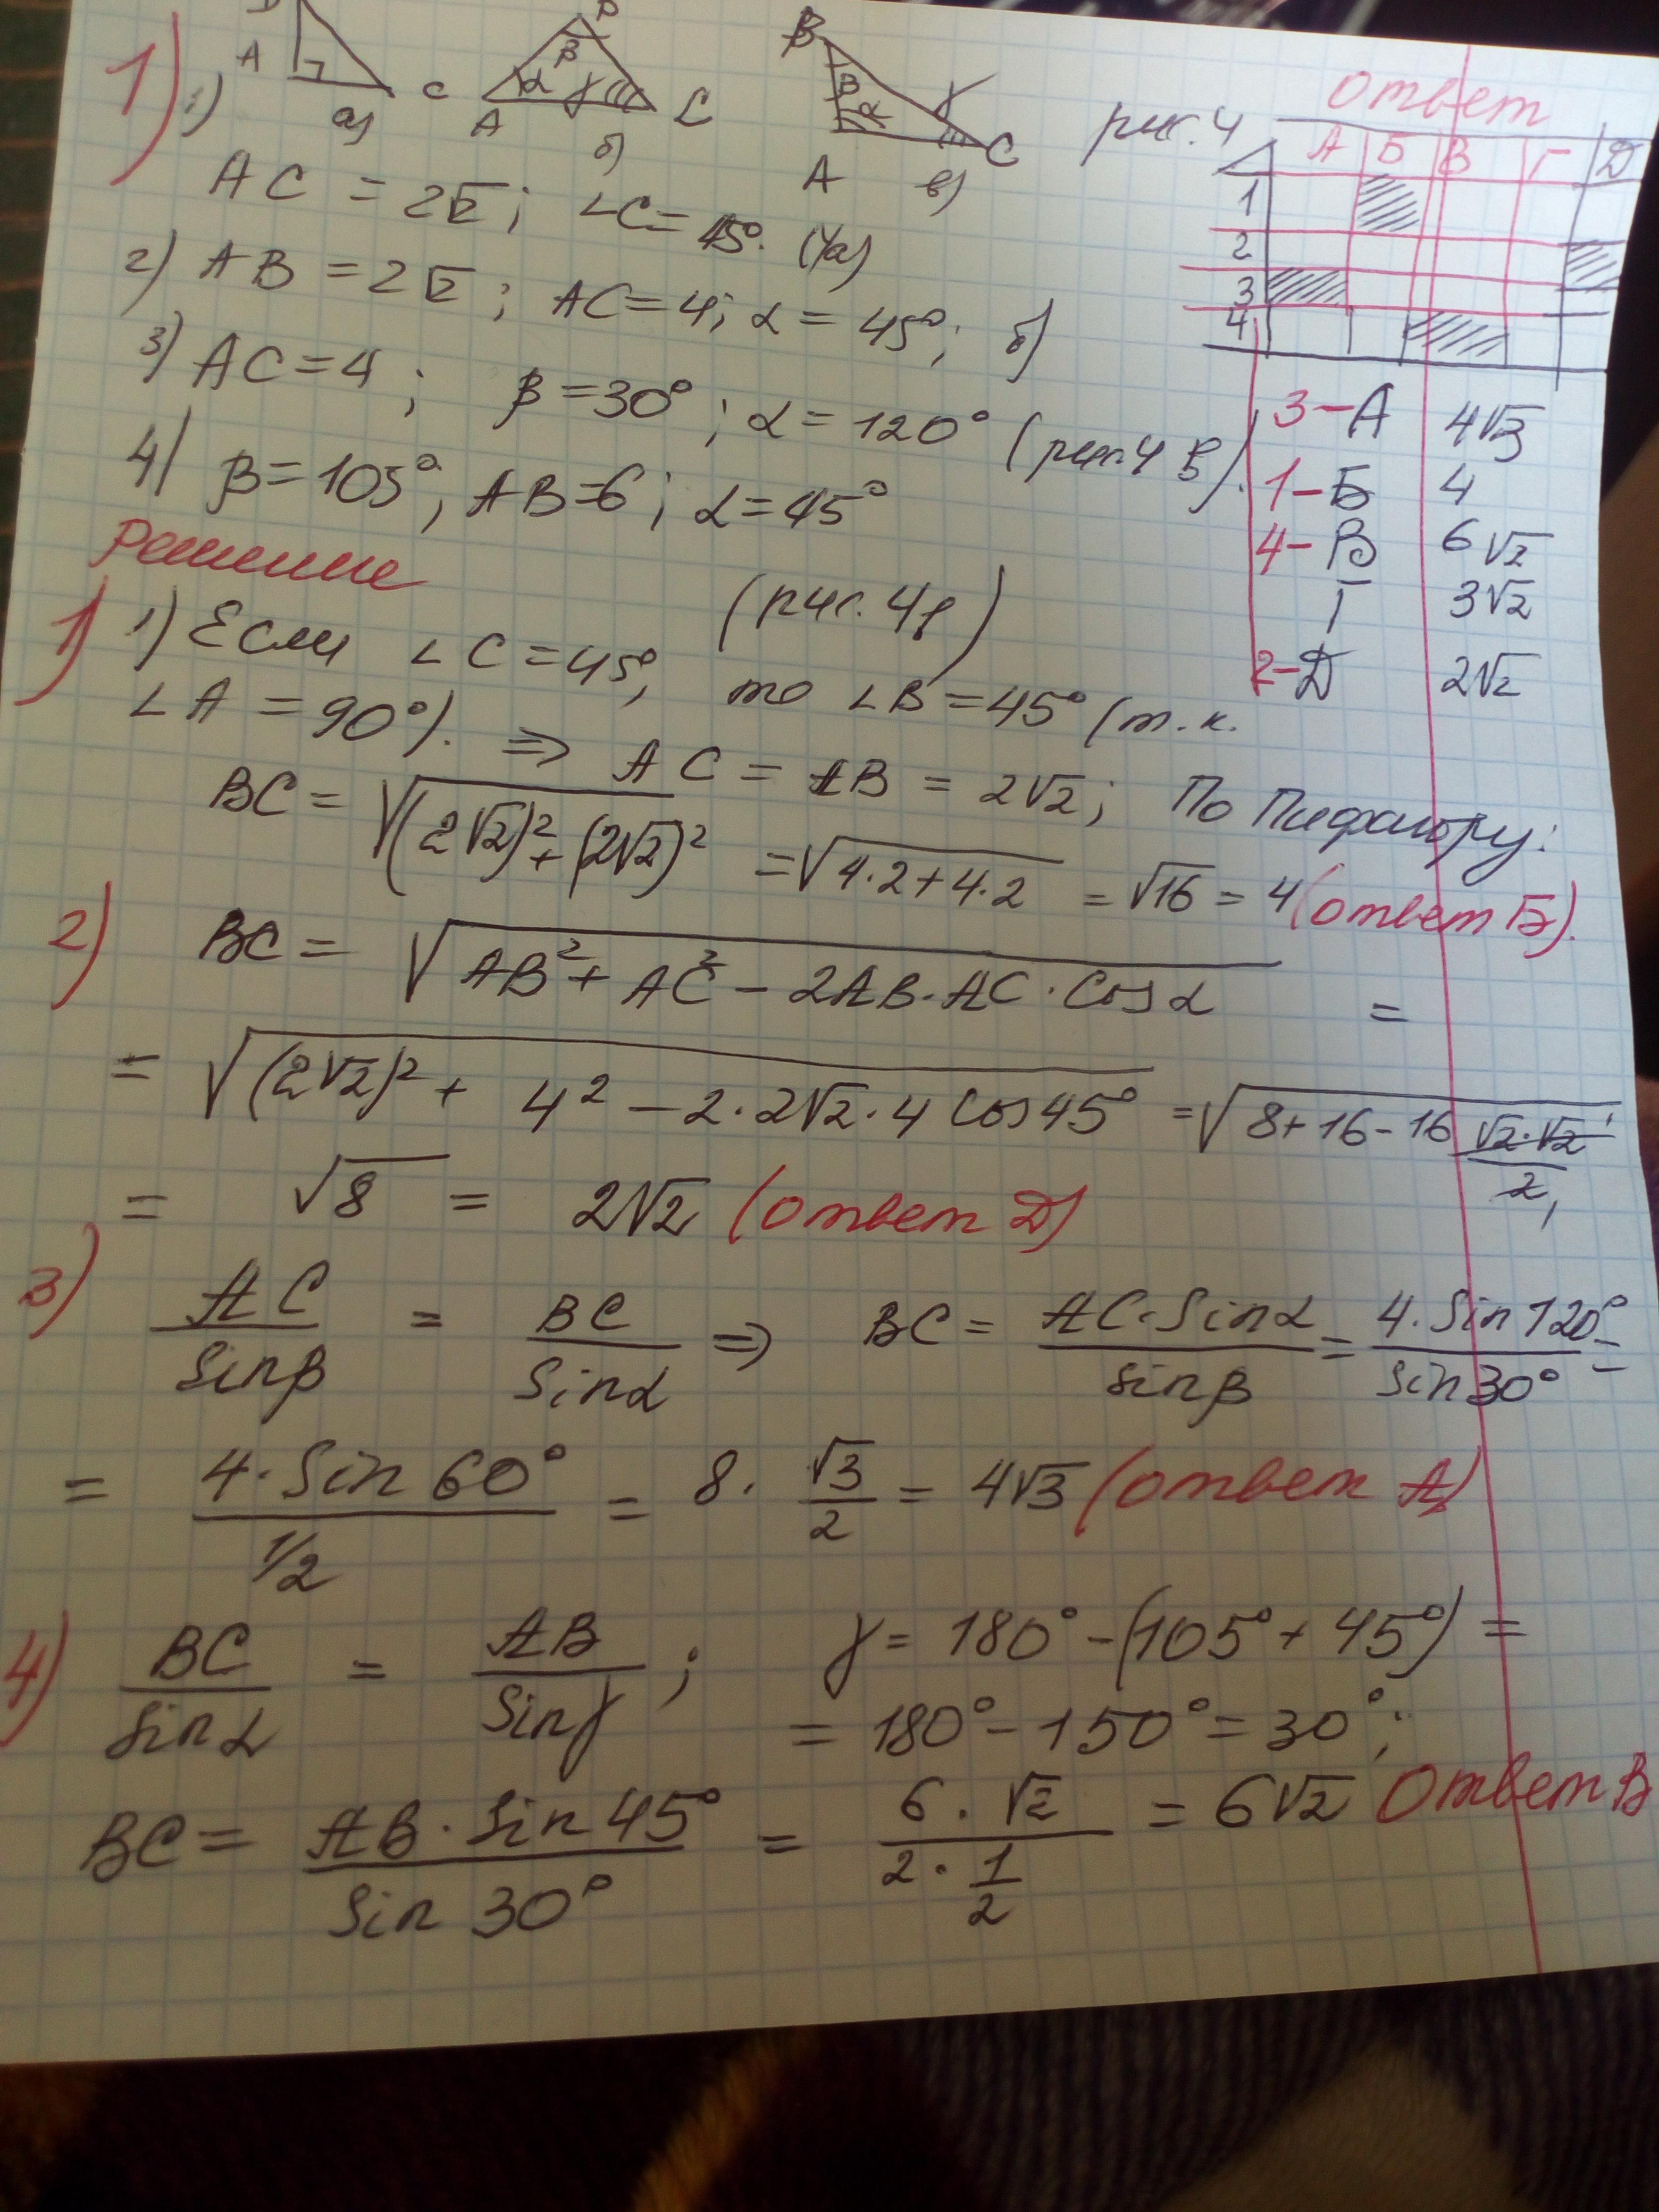 1) 1)
A C a)
β α γ A C б)
B β α γ A C в)
рис. 4
AC = 2√2; ∠C = 45°. (4а)
2) AB = 2√2; AC = 4; α = 45°; б)
3) AC = 4; β = 30°; α = 120° (рис. 4 в).
4) β = 105°, AB = 6; α = 45°
Ответ
А Б В Г Д
1
2
3
4
3 – А 4√3
1 – Б 4
4 – В 6√2
Г 3√2
2 – Д 2√2
Решение
1) 1) Если ∠C = 45°, (рис. 4а)
то ∠B = 45° (т.к.
∠A = 90°). ⇒ AC = AB = 2√2; По Пифагору:
BC = √((2√2)² + (2√2)²) = √(4·2 + 4·2) = √16 = 4 (ответ Б).
2) BC = √(AB² + AC² – 2AB·AC·Cos α) =
= √((2√2)² + 4² – 2·2√2·4 Cos 45°) = √(8 + 16 – 16 √2·√2/2)
= √8 = 2√2 (ответ Д)
3) AC/Sin β = BC/Sin α ⇒ BC = AC·Sin α/sin β = 4·Sin 120°/Sin 30° =
= 4·Sin 60°/1/2 = 8·√3/2 = 4√3 (ответ А)
4) BC/Sin α = AB/Sin γ; γ = 180° – (105° + 45°) =
= 180° – 150° = 30°;
BC = AB·Sin 45°/Sin 30° = 6·√2/2·1/2 = 6√2 Ответ В